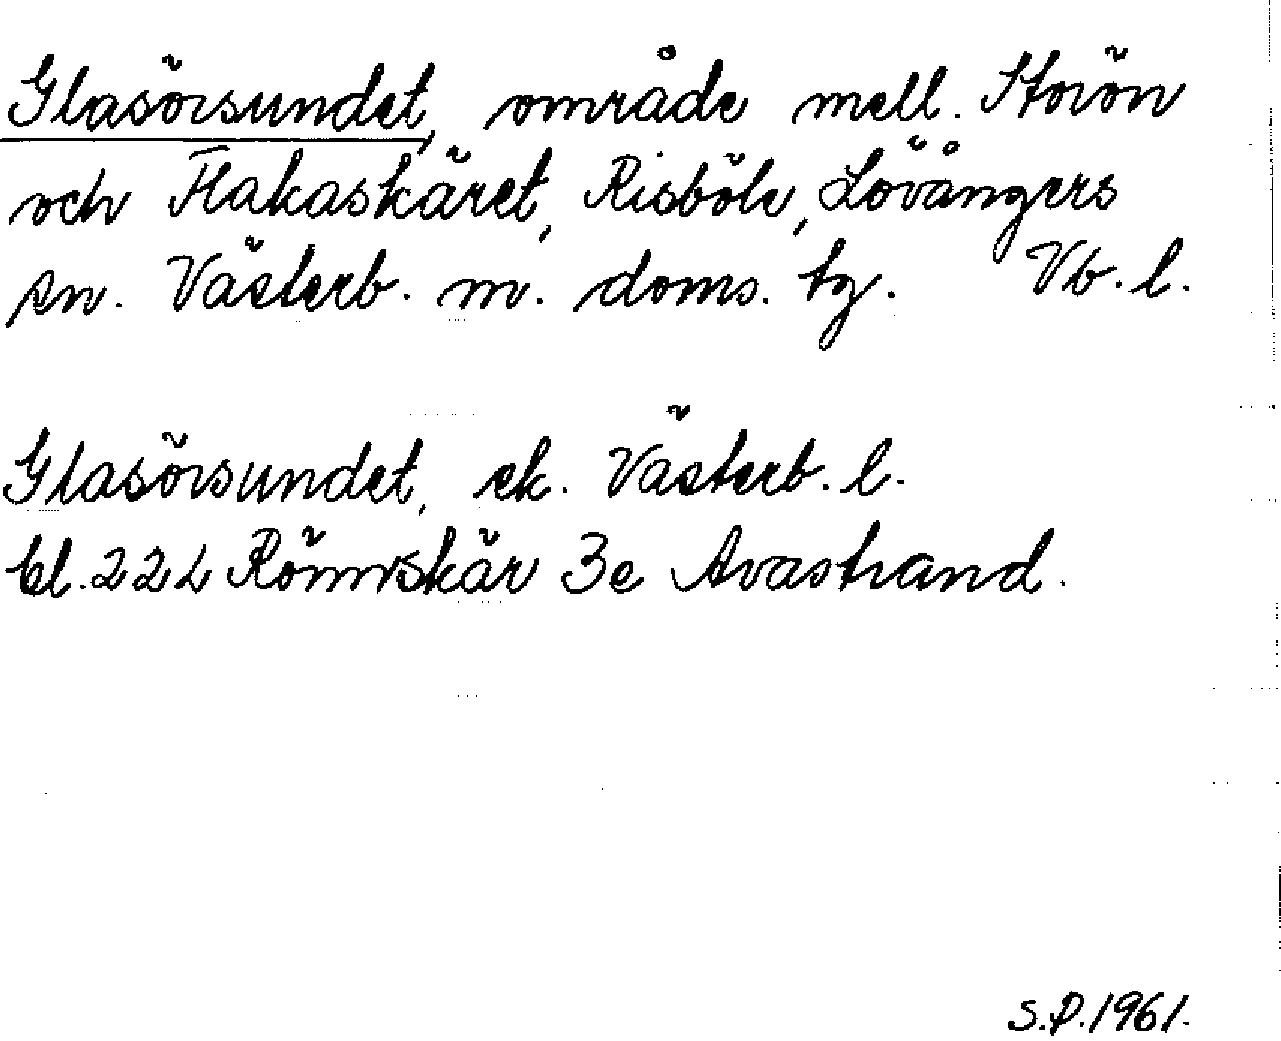 Glasörsundet, område mell. Storön
och Flakaskäret, Risböle, Lövångers
sn. Västerb. m. doms. tg. Vb. l.
Glasörsundet, ek. Västerb. l.
bl. 22L Rönnskär 3e Avastrand.
S.P. 1961.